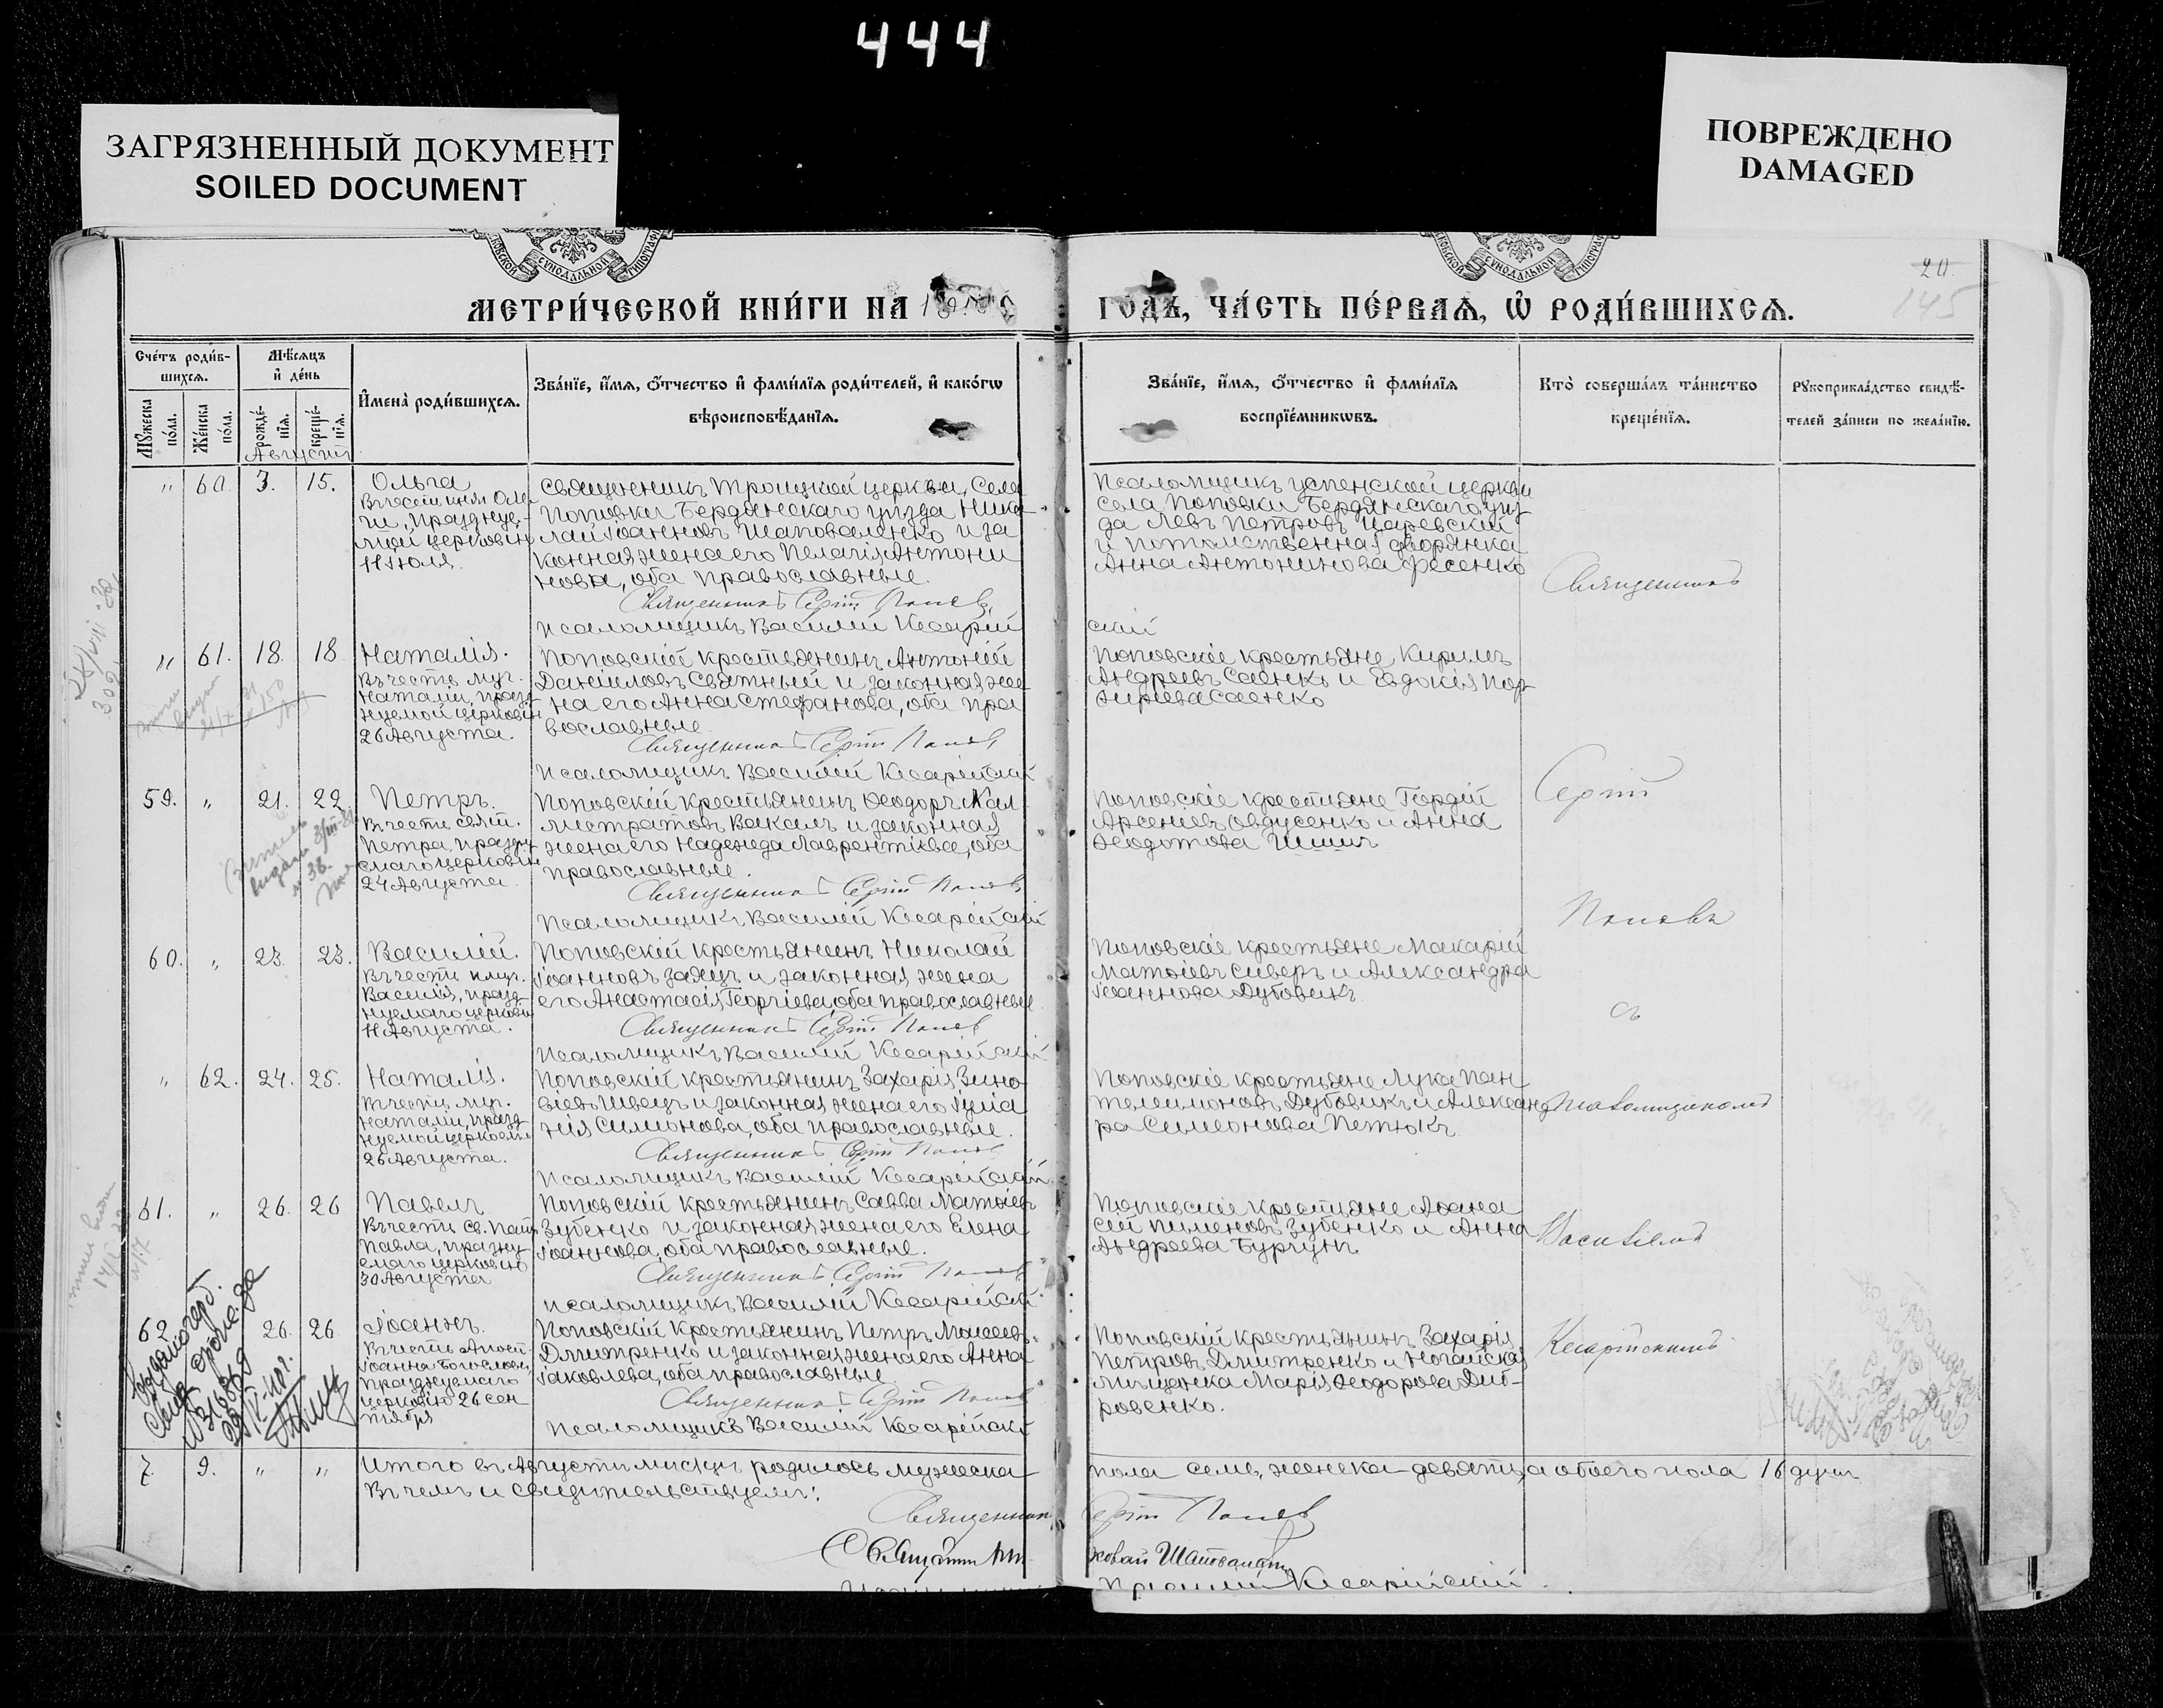 444
ЗАГРЯЗНЕННЫЙ ДОКУМЕНТ
SOILED DOCUMENT
ПОВРЕЖДЕНО
DAMAGED
20
145
МЕТРИ́ЧЕСКОЙ КНИ́ГИ НА
ГОДЪ, ЧА́СТЬ ПЕ́РВАѦ, Ѽ РОДИ́ВШИХСѦ.
Сче́тъ роди́в-
шихсѧ.
Мѣ́сѧцъ
и҆ де́нь
Мꙋ́жеска
по́ла.
Же́нска
по́ла.
рожде́-
нїѧ.
креще́-
нїѧ.
Августъ
И҆мена̀ роди́вшихсѧ.
Зва́нїе, и҆́мѧ, ѻ҆́тчество и҆ фами́лїѧ роди́телей, и҆ како́гѡ
вѣроисповѣ́данїѧ.
Зва́нїе, и҆́мѧ, ѻ҆́тчество и҆ фами́лїѧ
воспрїе́мникѡвъ.
Кто̀ соверша́лъ та́инство
креще́нїѧ.
Рꙋкоприкла́дство свидѣ́-
телей за́писи по жела́нїю.
" 60 3. 15.
Ольга
Въ честь княг. Оль-
ги, празднуе-
мой церковію
11 Іюля.
Священникъ Троицкой церкви, села
Поповки Бердянскаго уѣзда Нико-
лай Іоанновъ Шаповаленко и за
конная жена его Пелагія Антони
нова, оба православные.
Священникъ Сергій Поповъ
Псаломщикъ Василій Кесарій
Псаломщикъ Успенской церкви
села Поповки Бердянскаго уѣз
да Левъ Петровъ Царевскій
и потомственная дворянка
Анна Антонинова Фесенко
скій
" 61. 18. 18
Наталія.
Въ честь муч.
Наталіи, празд
нуемой церковію
26 Августа.
Поповскій крестьянинъ Антоній
Даніиловъ Святный и законная же
на его Анна Стефанова, оба пра
вославные
Священникъ Сергій Поповъ
Псаломщикъ Василій Кесарійскій
Поповскіе крестьяне Кириллъ
Андреевъ Саенко и Евдокія Пор
фирьева Саенко
59. " 21. 22
Петръ.
Въ честь свят.
Петра, праздну
емаго церковію
24 Августа.
Поповскій крестьянинъ Ѳеодоръ Кал-
листратовъ Вакалъ и законная
жена его Надежда Лаврентіева, оба
православные.
Священникъ Сергій Поповъ
Псаломщикъ Василій Кесарійскій
Поповскіе крестьяне Гордій
Арсеніевъ Овдусенко и Анна
Ѳеодотова Шишъ
60. " 23. 23.
Василій.
Въ честь муч.
Василія, празд-
нуемаго церковію
11 Августа.
Поповскій крестьянинъ Николай
Іоанновъ Заяцъ и законная жена
его Анастасія Георгіева, оба православные.
Священникъ Сергій Поповъ
Псаломщикъ Василій Кесарійскій
Поповскіе крестьяне Макарій
Матѳіевъ Сиверъ и Александра
Іоаннова Дубовикъ
" 62. 24. 25.
Наталія.
Въ честь муч.
Наталіи, празд
нуемой церковію
26 Августа.
Поповскій крестьянинъ Захарія Зино
віевъ Швецъ и законная жена его Іуліа
нія Симонова, оба православные.
Священникъ Сергій Поповъ
Псаломщикъ Василій Кесарійскій
Поповскіе крестьяне Лука Пан
телеимоновъ Дубовикъ и Александ
ра Симеонова Петюкъ
61. " 26. 26
Павелъ
Въ честь Св. Патр
Павла, праздну
емаго церковію
30 Августа
Поповскій крестьянинъ Савва Матѳіевъ
Зубенко и законная жена его Елена
Іоаннова, оба православные.
Священникъ Сергій Поповъ
Псаломщикъ Василій Кесарійскій
Поповскіе крестьяне Аѳана
сій Пименовъ Зубенко и Анна
Андреева Бургунъ
62 26. 26
Іоаннъ.
Въ честь Апост.
Іоанна Богослова,
празднуемаго
церковію 26 сен
тября
Поповскій крестьянинъ Петръ Моисеевъ
Дмитренко и законная жена его Анна
Іаковлева, оба православные
Священникъ Сергій Поповъ
Псаломщикъ Василій Кесарійскій
Поповскій крестьянинъ Захарія
Петровъ Дмитренко и Ногайская
мѣщанка Марія Ѳеодорова Диб-
ровенко.
Священникъ
Сергій
Поповъ
съ
псаломщикомъ
Василіемъ
Кесарійскимъ
7. 9. " "
Итого въ Августѣ мѣсяцѣ родилось мужеска
пола семь, женска девять, а обоего пола 16 душъ
Въ чемъ и свидѣтельствуемъ:
Священникъ Сергій Поповъ
Священникъ Николай Шаповаленко
Кесарійскій